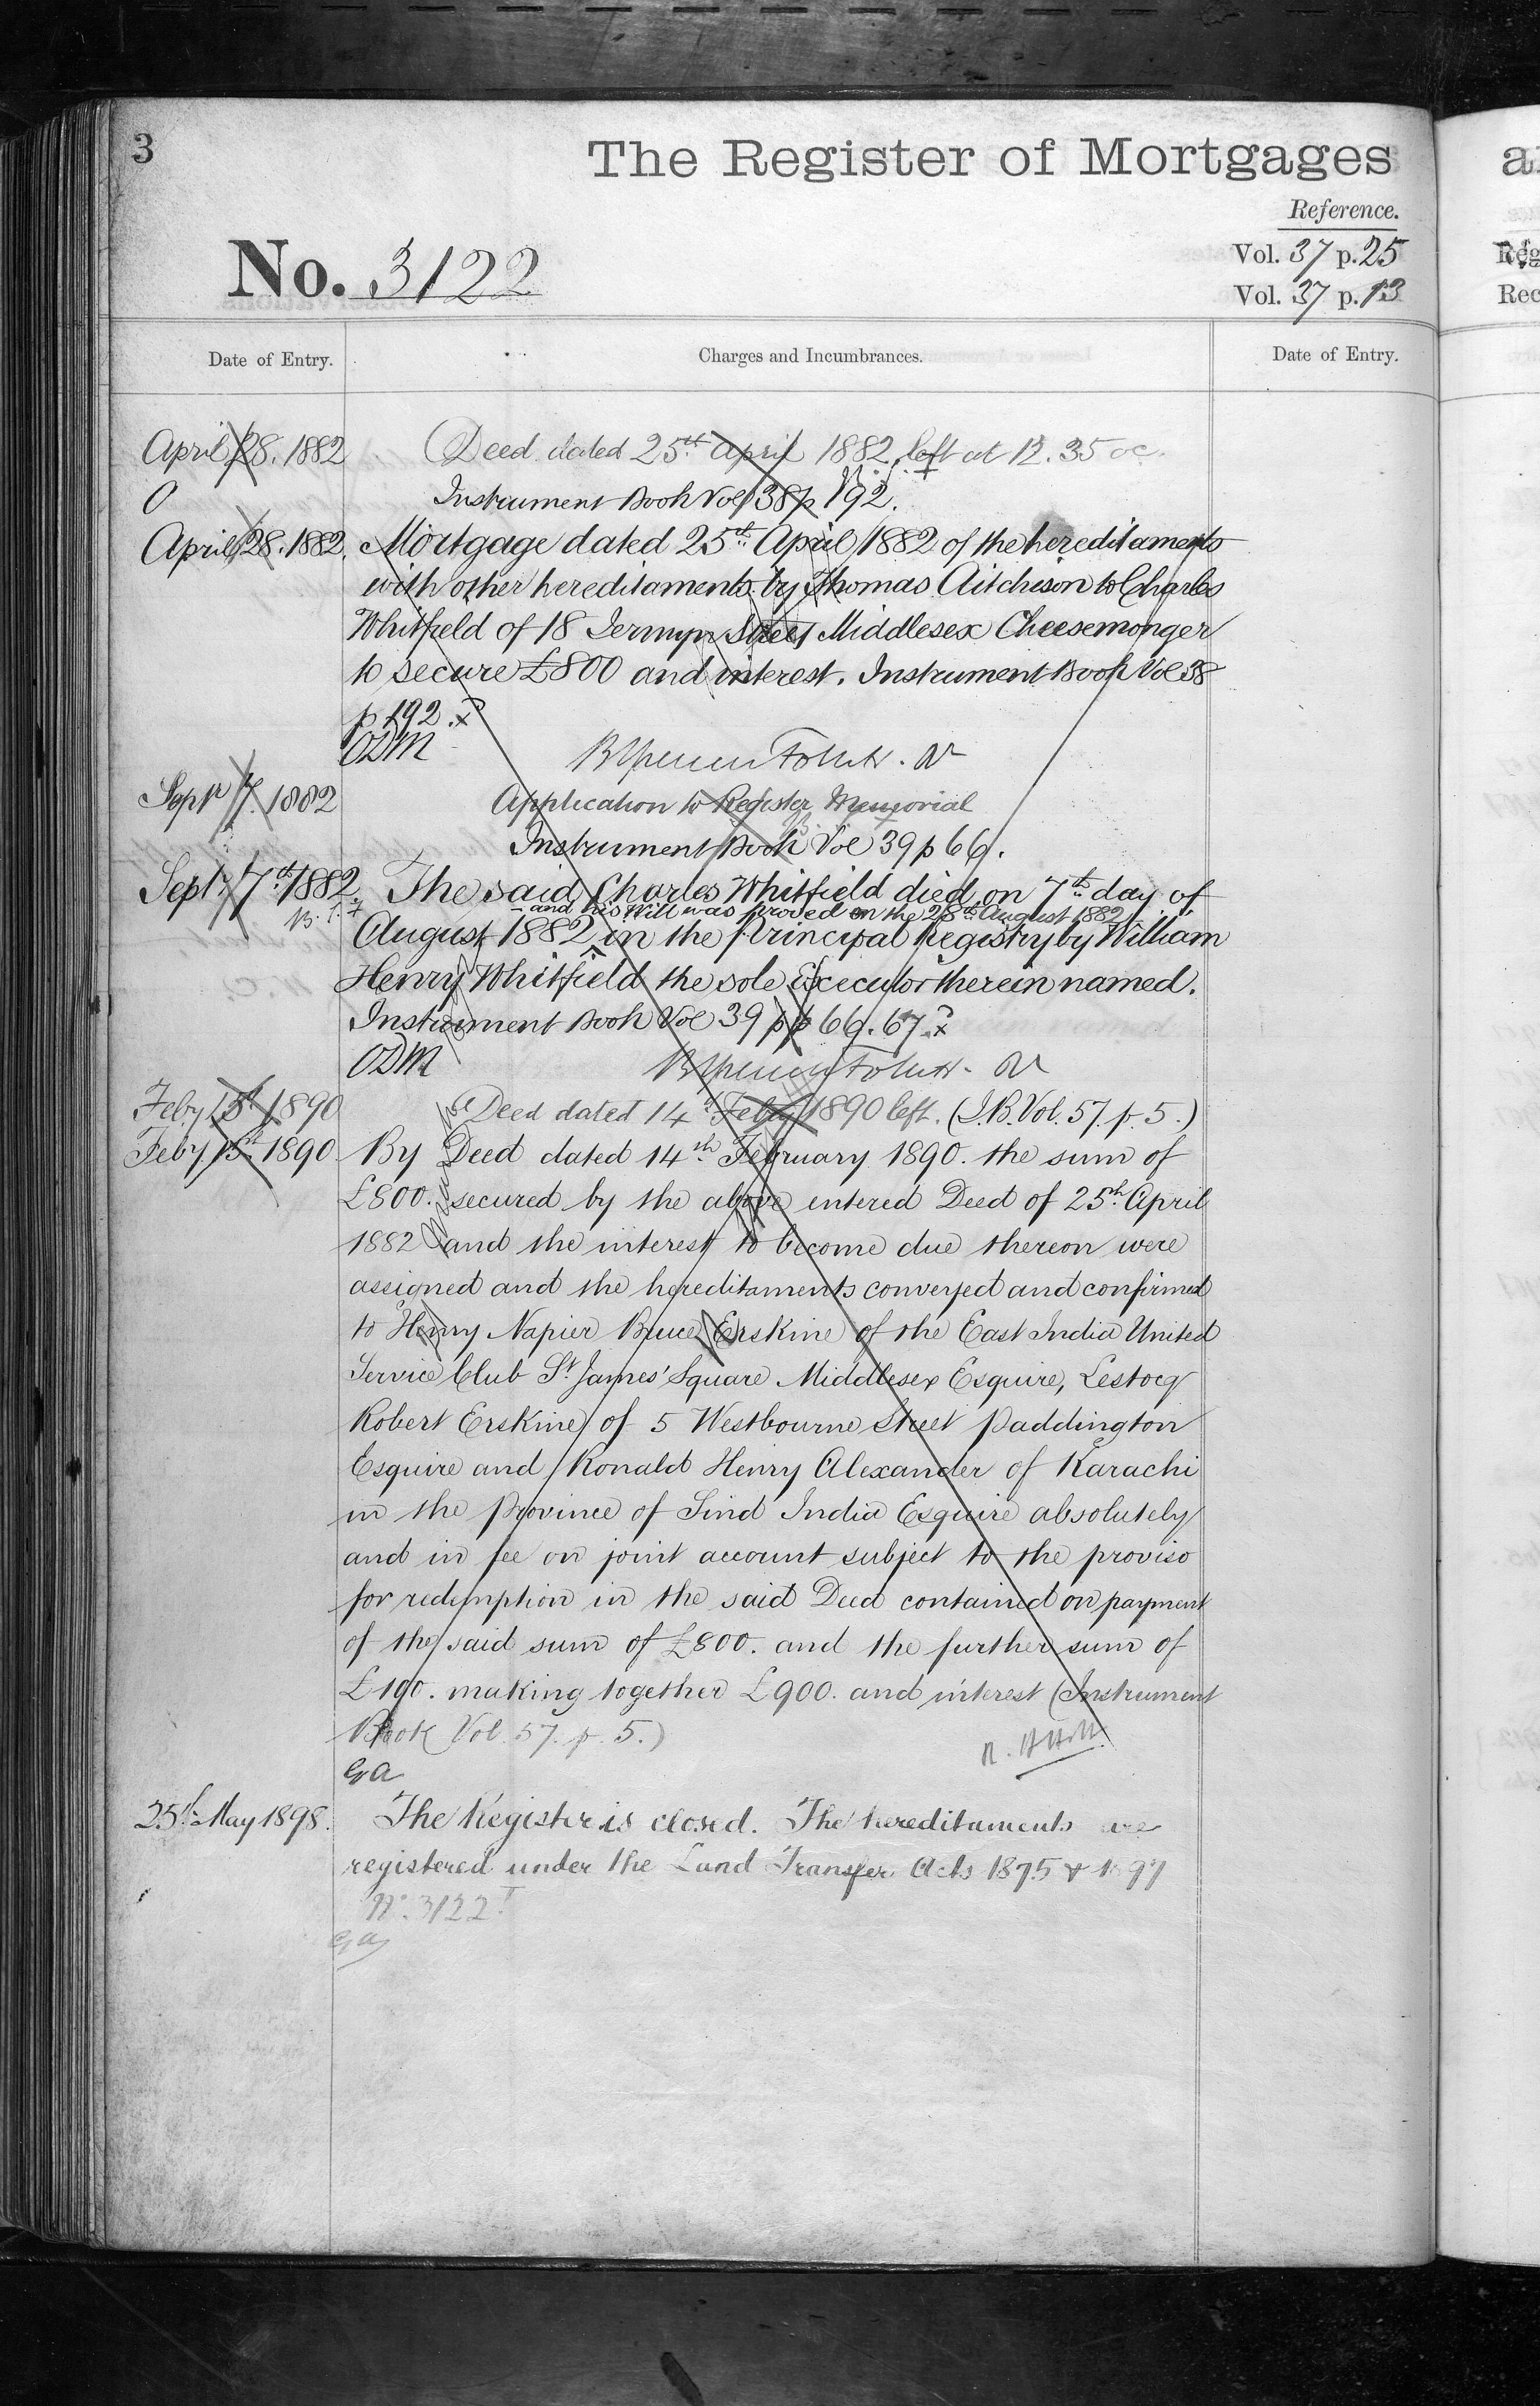 3
The Register of Mortgages
Reference.
No. 3122
Vol. 37 p. 25
Vol. 37 p. 13
Date of Entry.
Charges and Incumbrances.
Date of Entry.
April 28. 1882
Deed dated 25th April 1882 left at 12.35 oc.
Instrument Book Vol 38 p 192.
April 28. 1882.
Mortgage dated 25th April 1882 of the hereditaments
with other hereditaments by Thomas Aitchison to Charles
Whitfield of 18 Jermyn Street Middlesex Cheesemonger
to secure £800 and interest. Instrument Book Vol 38
p 192.
ODM
Sept 7. 1882
Application to Register Memorial
Instrument Book Vol 39 p 66.
Septr 7th 1882.
The said Charles Whitfield died on 7th day of
and his Will was proved on the 28th August 1882
August 1882 in the Principal Registry by William
Henry Whitfield the sole Executor therein named.
Instrument Book Vol 39 pp 66. 67.
ODM
Feby 15th 1890
Deed dated 14th Feby 1890 left. (I.B. Vol. 57. p. 5.)
Feby 15th 1890
By Deed dated 14th February 1890. the sum of
£800. secured by the above entered Deed of 25th April
1882 and the interest to become due thereon were
assigned and the hereditaments conveyed and confirmed
to Henry Napier Bruce Erskine of the East India United
Service Club St James' Square Middlesex Esquire, Lestocq
Robert Erskine of 5 Westbourne Street Paddington
Esquire and Ronald Henry Alexander of Karachi
in the Province of Sind India Esquire absolutely
and in fee on joint account subject to the proviso
for redemption in the said Deed contained on payment
of the said sum of £800. and the further sum of
£100. making together £900. and interest (Instrument
Book Vol. 57. p. 5.)
GA
25th May 1898.
The Register is closed. The hereditaments are
registered under the Land Transfer Acts 1875 & 1897
No. 3122
GA
a
Reg
Rec